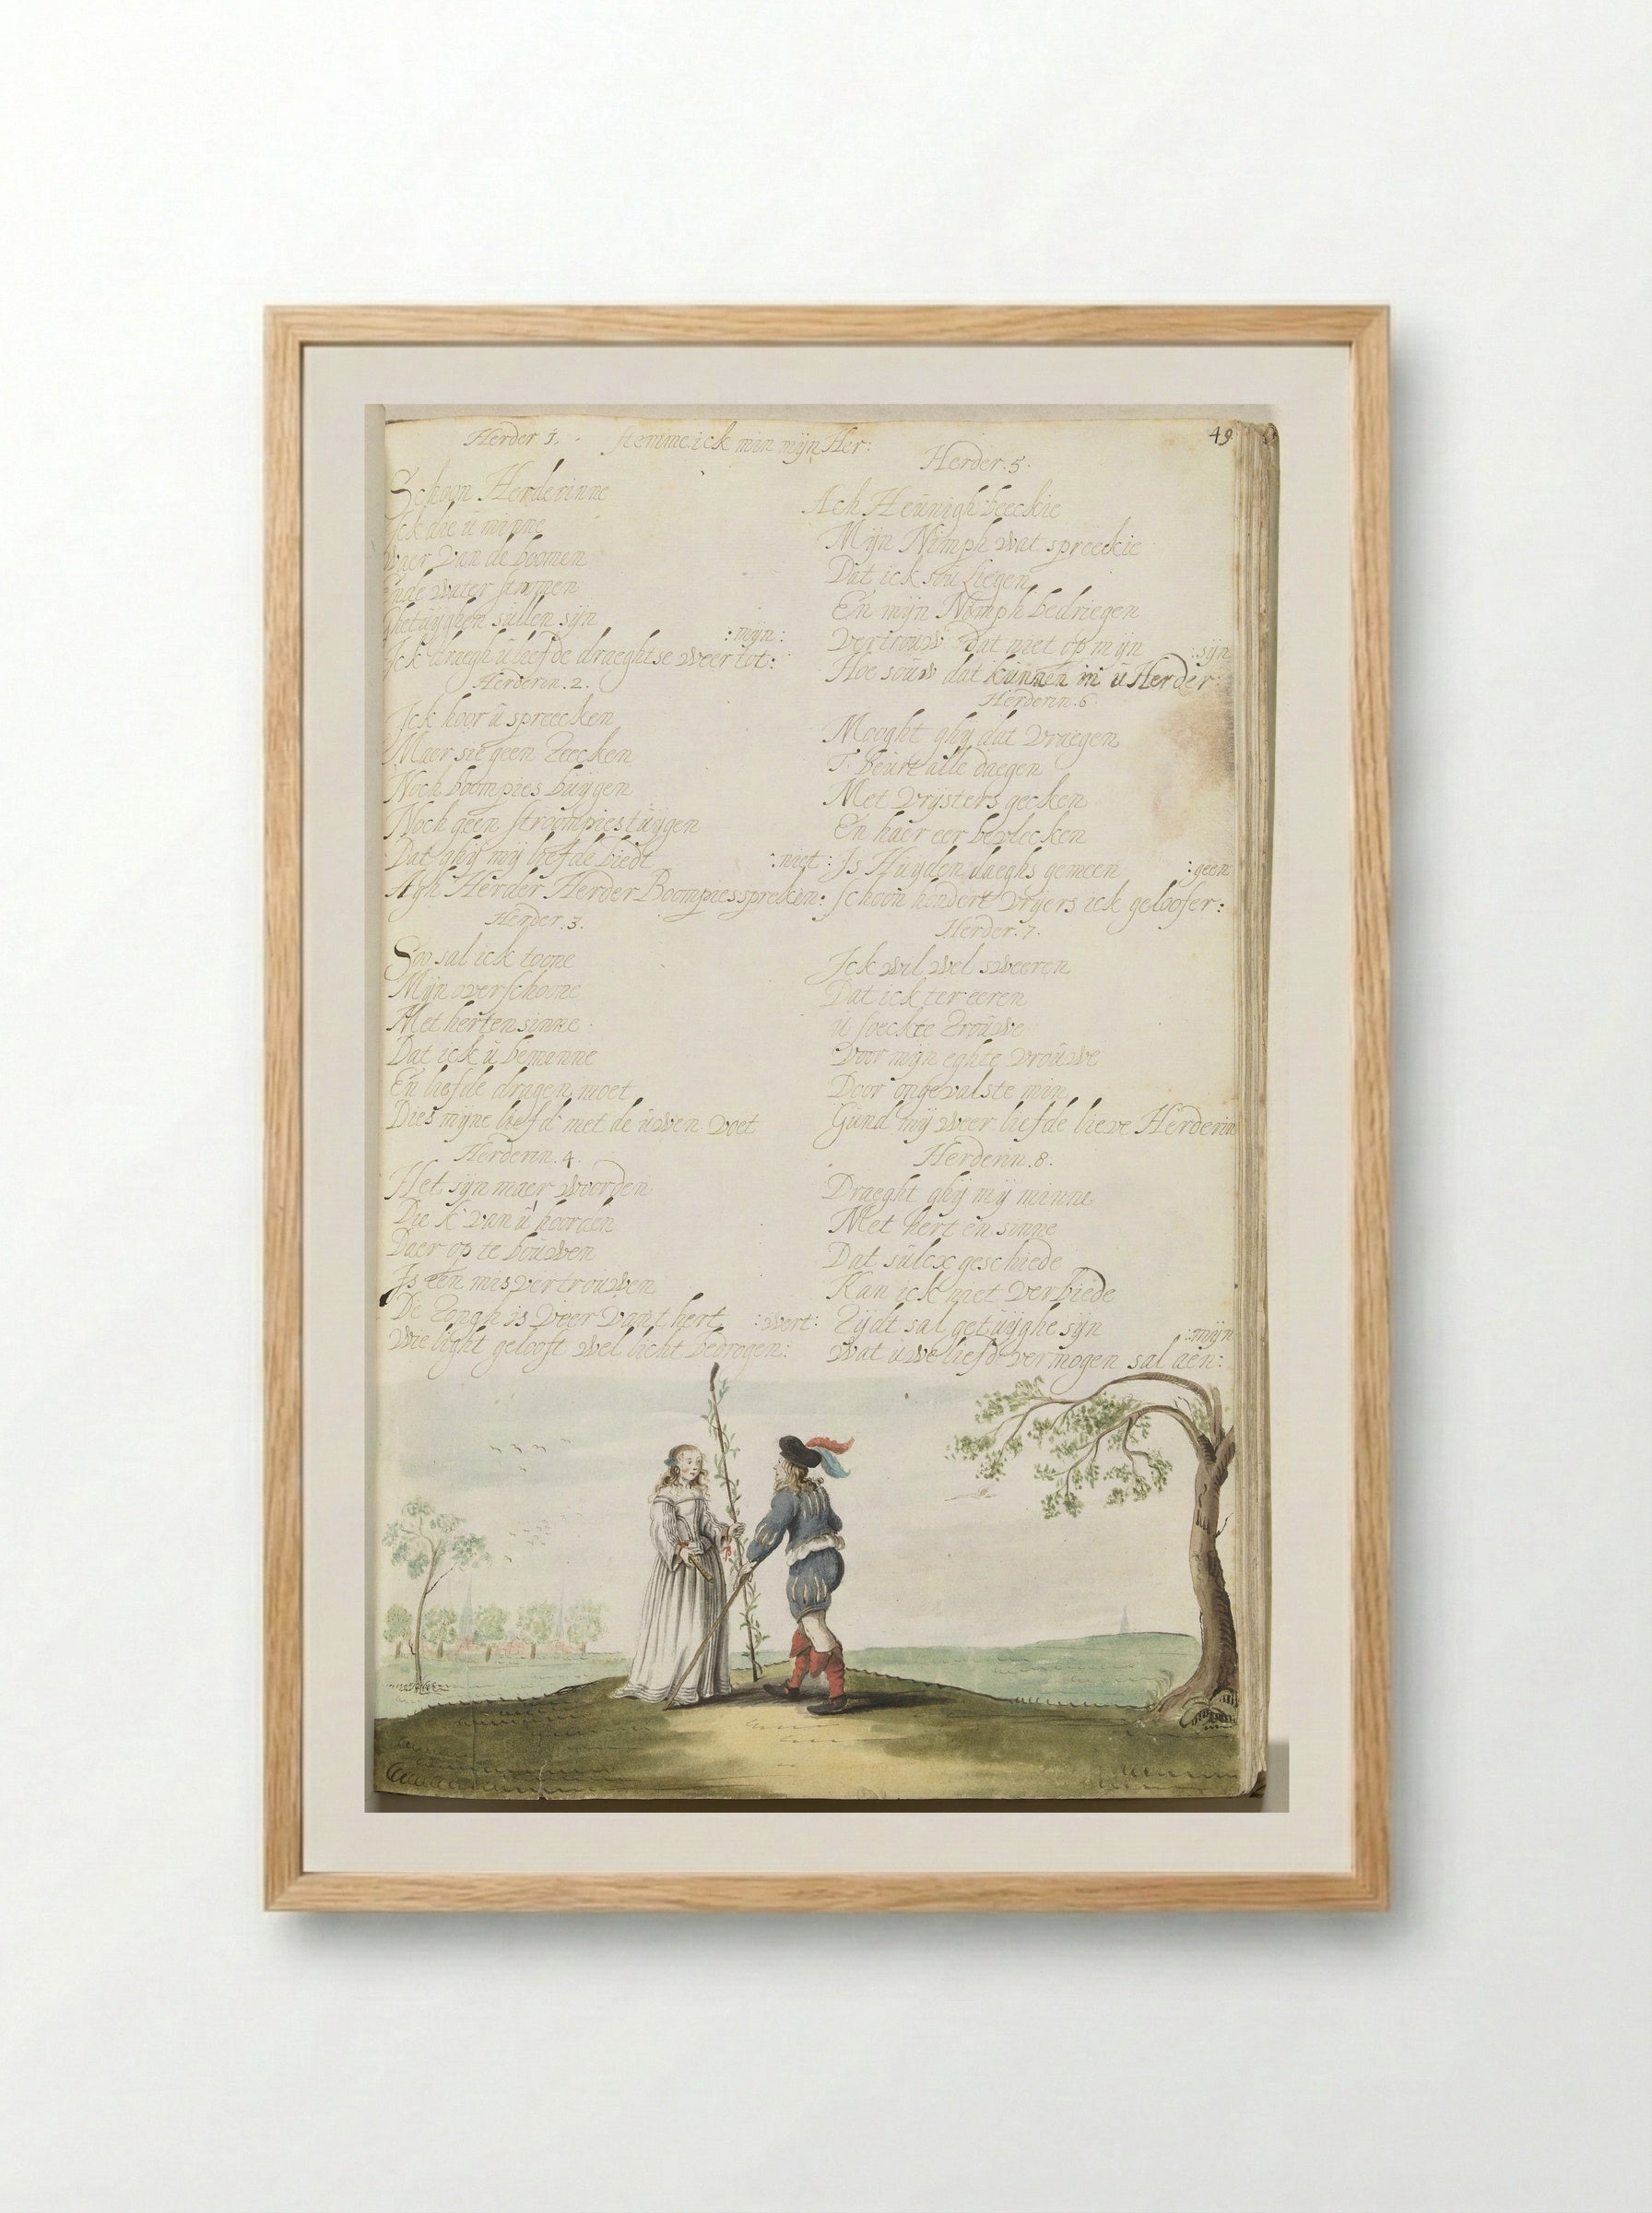 Herder 1. stemme. ick min mijn Her:
Schoon Herderinne
Ick die ü minne
Waer Van de boomen
Ende water stromen
Ghetüÿghen süllen sijn
:mijn:
Ick draegh ü leefde draeghtse weer tot:
Herderin. 2.
Ick hoor ü spreecken
Maer sie geen Teecken
Noch boompies büÿgen
Noch geen stroompies tüÿgen
Dat ghij mij liefde biedt
:niet:
Agh Herder Herder Boompies spreken:
Herder. 3.
Soo sal ick toone
Mijn overschoone
Met herten sinne
Dat ick ü beminne
En liefde dragen moet
Dies mijne liefd' met de üwen Voet
Herderin. 4.
Het sijn maer Woorden
Die k' Van ü hoorden
Daer op te boüwen
Is een mis Vertroüwen
De Tongh is Veer Van't hert :wert:
Wie light gelooft wel licht bedrogen:
49
Herder. 5.
Ach Heünigh beeckie
Mijn Nimph wat spreeckie
Dat ick soü Liegen
En mijn Nimph bedriegen
Vertroüw dat niet op mijn :sijn
Hoe soüw dat künnen in ü Herder
Herderin. 6.
Mooght ghij dat Vraegen
T. Beürt alle daegen
Met Vrijsters gecken
En haer eer bevlecken
Is Hüÿden daeghs gemeen :geen
schoon hondert Vrijers ick geloofer:
Herder. 7.
Ick wil wel sweeren
Dat ick ter eeren
ü soeckte Troüwe
Voor mijn eghte Vroüwe
Door ongevalste min
Gund mij weer liefde lieve Herderin
Herderin. 8.
Draeght ghij mij minne
Met hert en sinne
Dat sülcx geschiede
Kan ick niet Verbiede
Tijdt sal getüÿghe sijn :mijn
Wat üwe liefde vermogen sal aen: